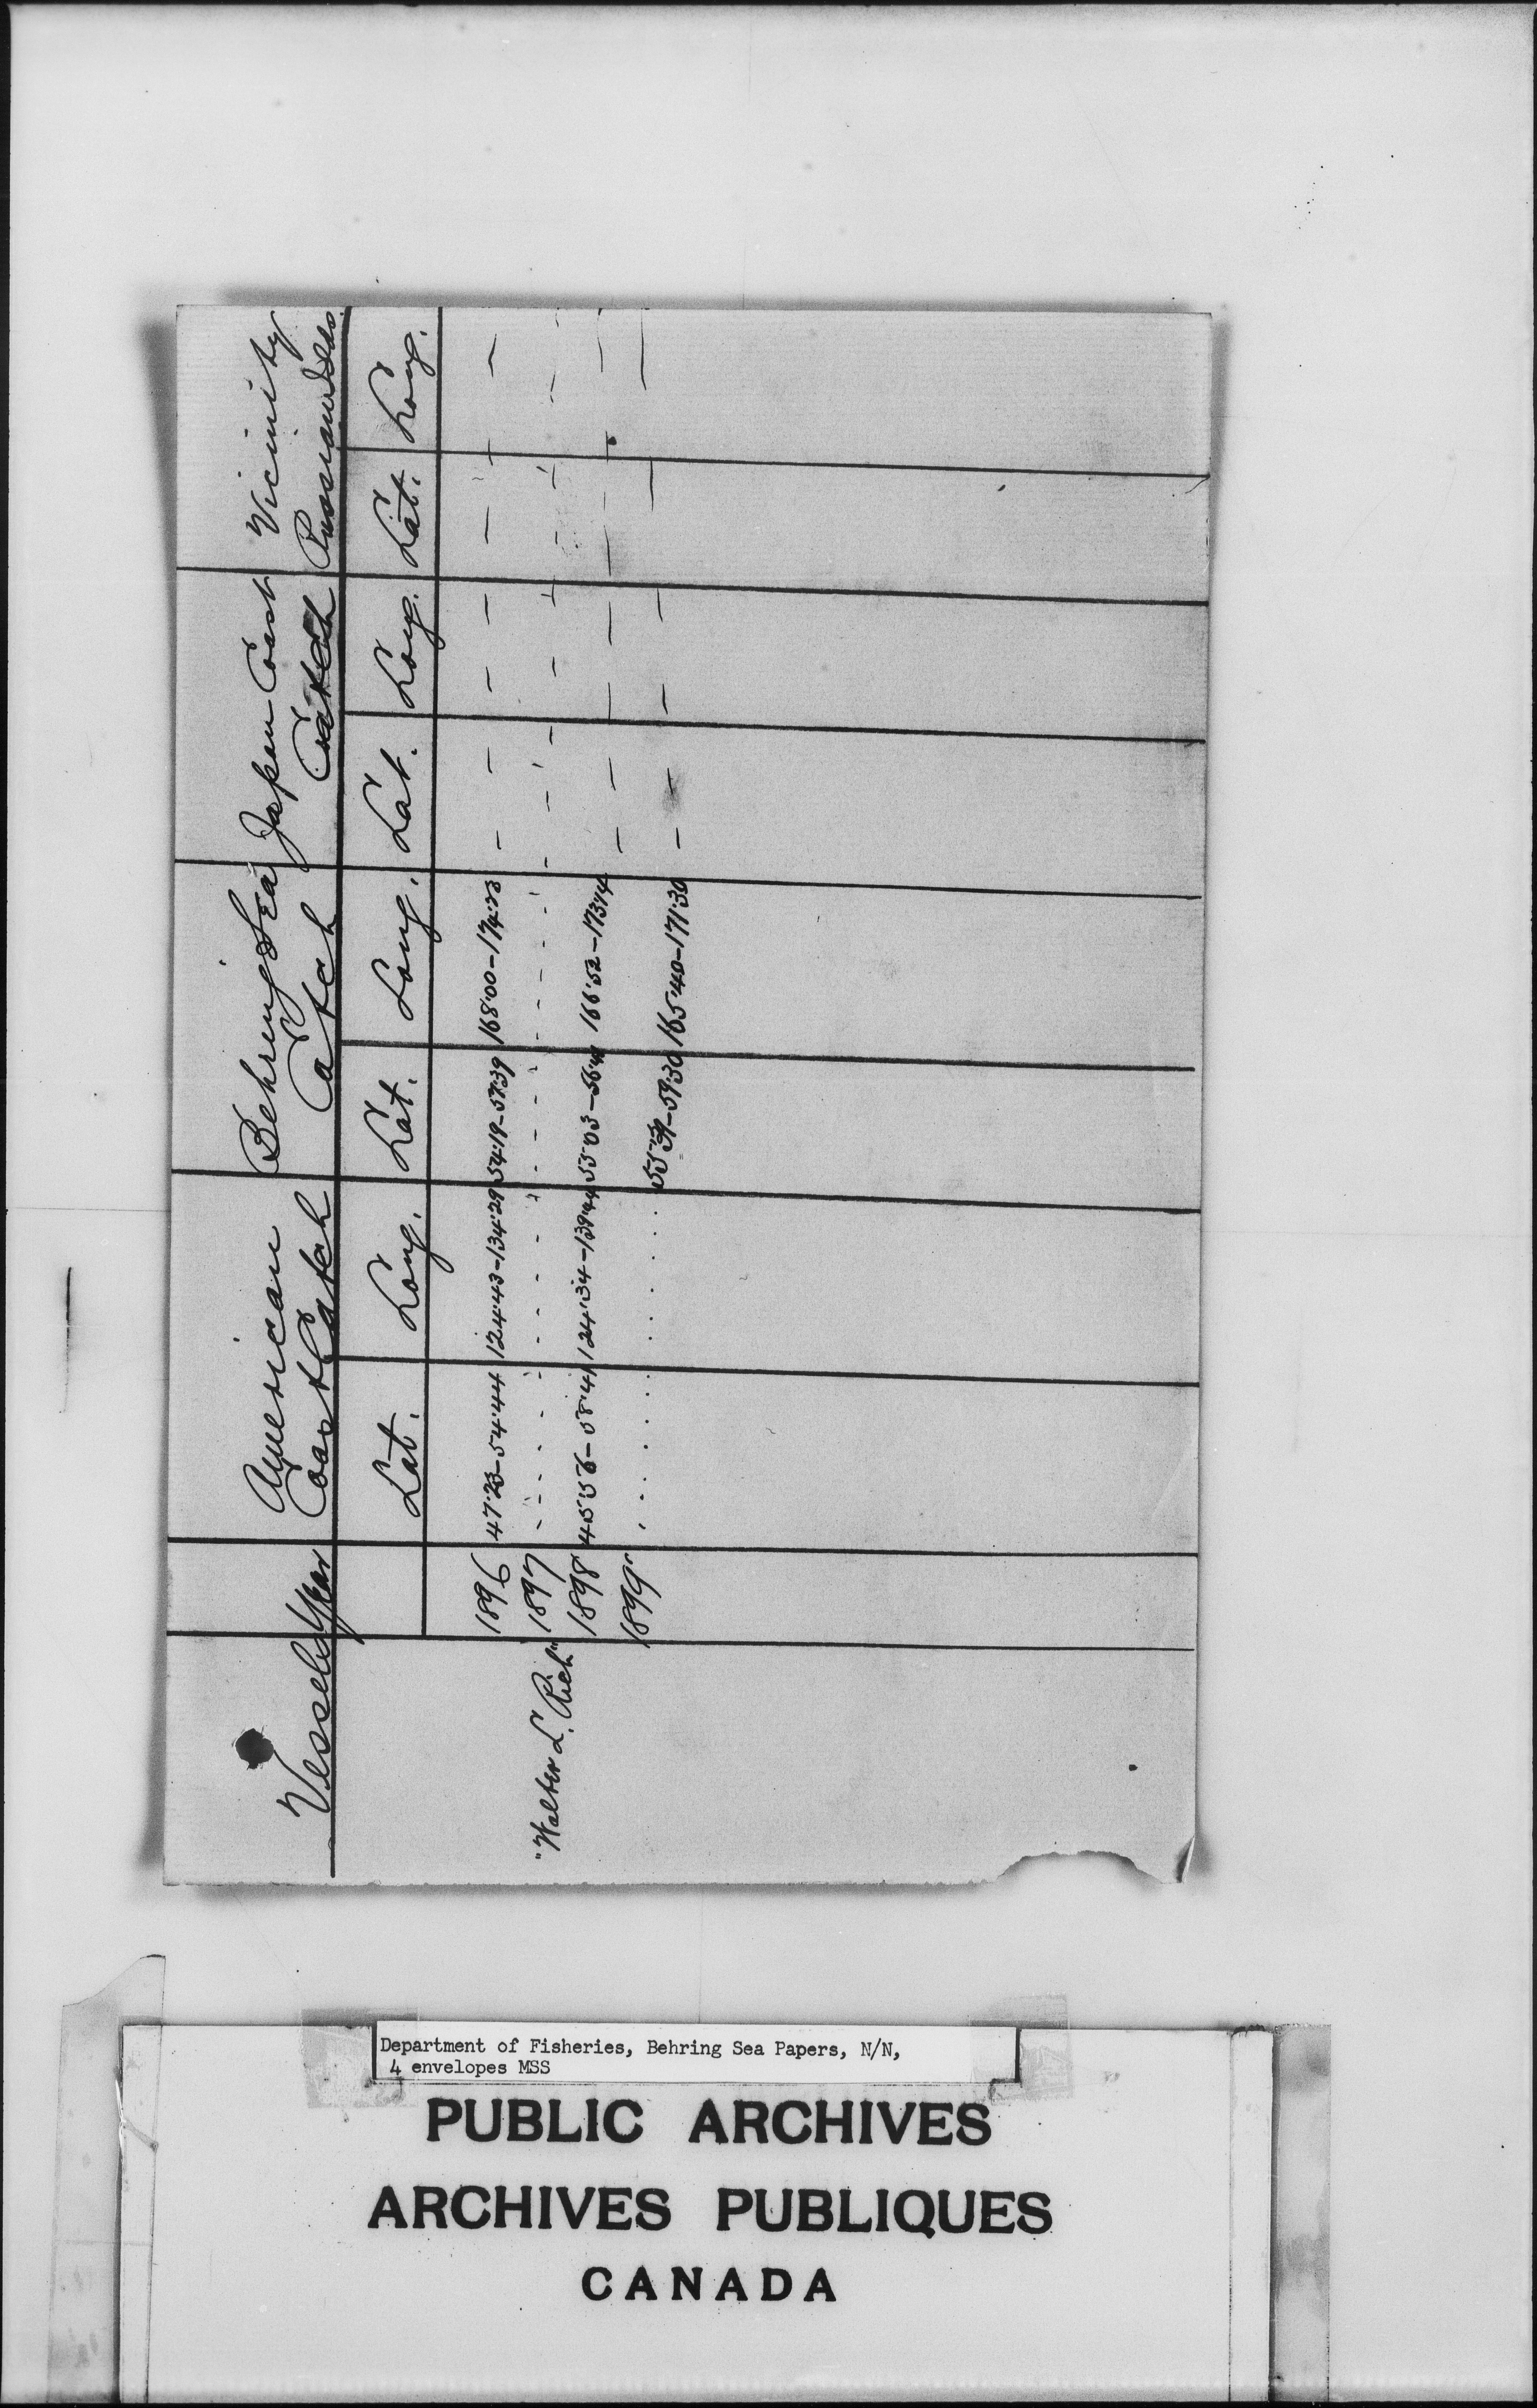 Vessels Year American Coast Catch Behring Sea Catch Japan Coast Catch Vicinity Russian Islds.
Lat. Long. Lat. Long. Lat. Long. Lat. Long.
1896 47.23-54.44 124.43-134.29 54.19-57.39 168.00-174.23 - - - - - -
"Walter L. Rich" 1897 - - - - - - - - - -
1898 45.56-58.41 124.34-139.44 55.03-56.41 166.52-173.14 - - - -
1899 . . . . . . . . . . 55.39-59.30 165.40-171.30 - - - -
Department of Fisheries, Behring Sea Papers, N/N,
4 envelopes MSS
PUBLIC ARCHIVES
ARCHIVES PUBLIQUES
CANADA